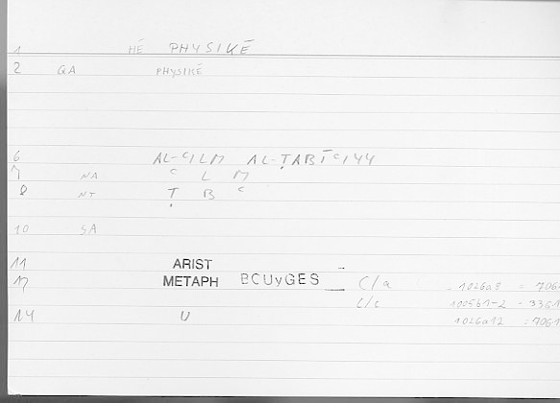 1 HÉ PHYSIKÉ
2 GA PHYSIKÉ
6 AL-ʿILM AL-ṬABĪʿIYY
7 NA ʿ L M
8 NT Ṭ B ʿ
10 SA
11 ARIST
12 METAPH BCUyGES C/a 1026a8 = 706
L/c 1005b1-2 = 336
14 U 1026a12 : 706